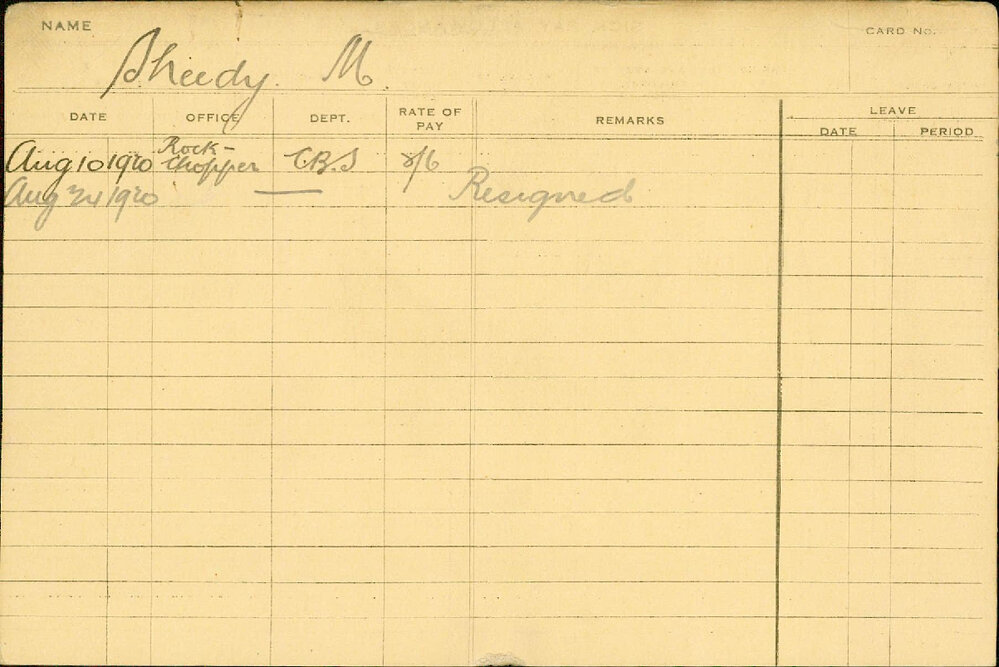 NAME
CARD No.
Sheedy. M
DATE OFFICE DEPT. RATE OF PAY REMARKS LEAVE
DATE PERIOD
Aug 10 1920 Rock-chopper C.B.S /6
Aug 24 1920 — Resigned